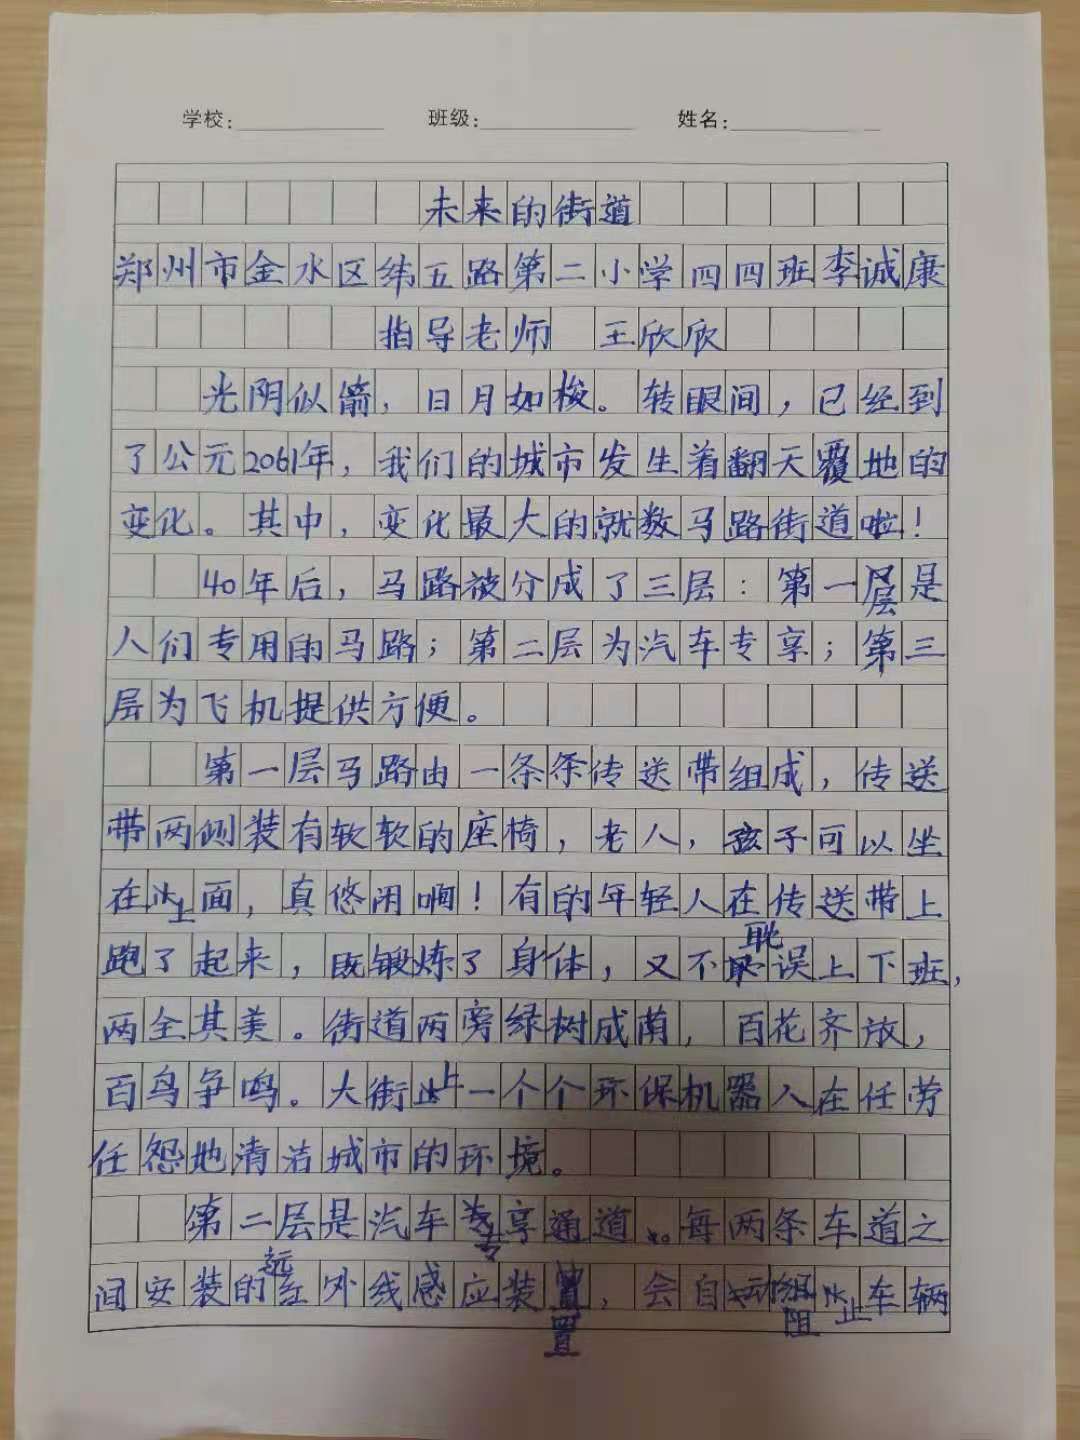 学校：　班级：　姓名：
未来的街道
郑州市金水区纬五路第二小学四四班李诚康
指导老师　王欣欣
光阴似箭，日月如梭。转眼间，已经到
了公元2061年，我们的城市发生着翻天覆地的
变化。其中，变化最大的就数马路街道啦！
40年后，马路被分成了三层：第一层是
人们专用的马路；第二层为汽车专享；第三
层为飞机提供方便。
第一层马路由一条条传送带组成，传送
带两侧装有软软的座椅，老人，孩子可以坐
在上面，真悠闲啊！有的年轻人在传送带上
跑了起来，既锻炼了身体，又不耽误上下班，
两全其美。街道两旁绿树成荫，百花齐放，
百鸟争鸣。大街上一个个环保机器人在任劳
任怨地清洁城市的环境。
第二层是汽车专享通道。每两条车道之
间安装的远红外线感应装置，会自动阻止车辆